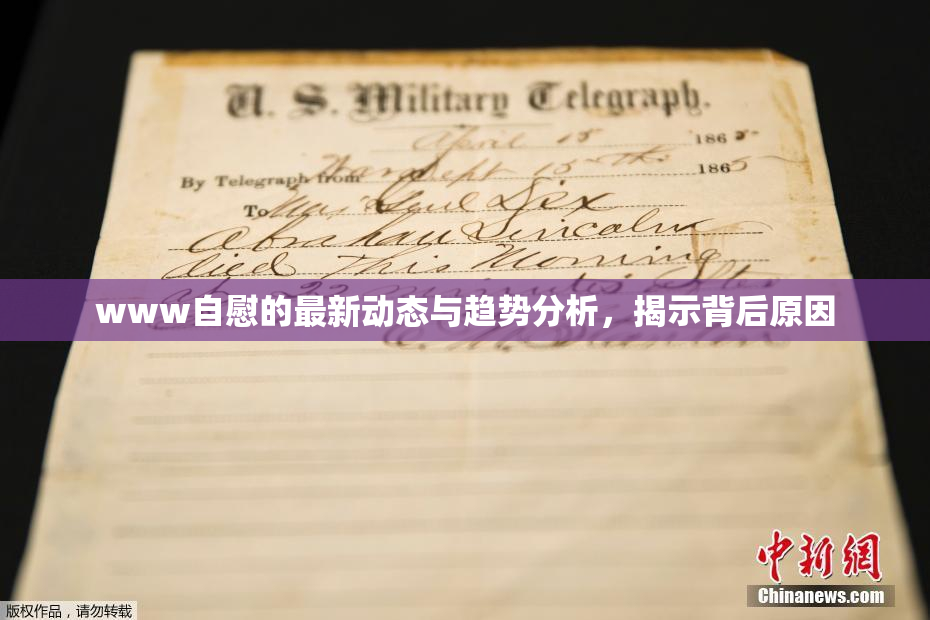 U. S. Military Telegraph.
April 15 1865
By Telegraph from War Dept 15th 1865
To Maj Genl Dix
Abraham Lincoln
died This Morning
at 22 minutes after
www自慰的最新动态与趋势分析，揭示背后原因
E. M. Stanton
中新网
Chinanews.com
版权作品，请勿转载